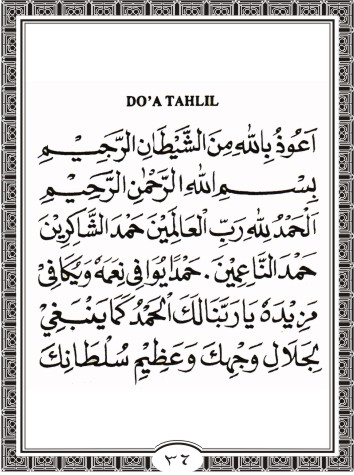 DO'A TAHLIL
اَعُوْذُ بِاللهِ مِنَ الشَّيْطَانِ الرَّجِيْمِ
بِسْمِ اللهِ الرَّحْمٰنِ الرَّحِيْمِ
اَلْحَمْدُ لِلّٰهِ رَبِّ الْعَالَمِيْنَ حَمْدَ الشَّاكِرِيْنَ
حَمْدَ النَّاعِمِيْنَ . حَمْدًا يُوَافِى نِعَمَهُ وَيُكَافِىُ
مَزِيْدَهُ يَا رَبَّنَا لَكَ الْحَمْدُ كَمَا يَنْبَغِيْ
لِجَلَالِ وَجْهِكَ وَعَظِيْمِ سُلْطَانِكَ
٣٦